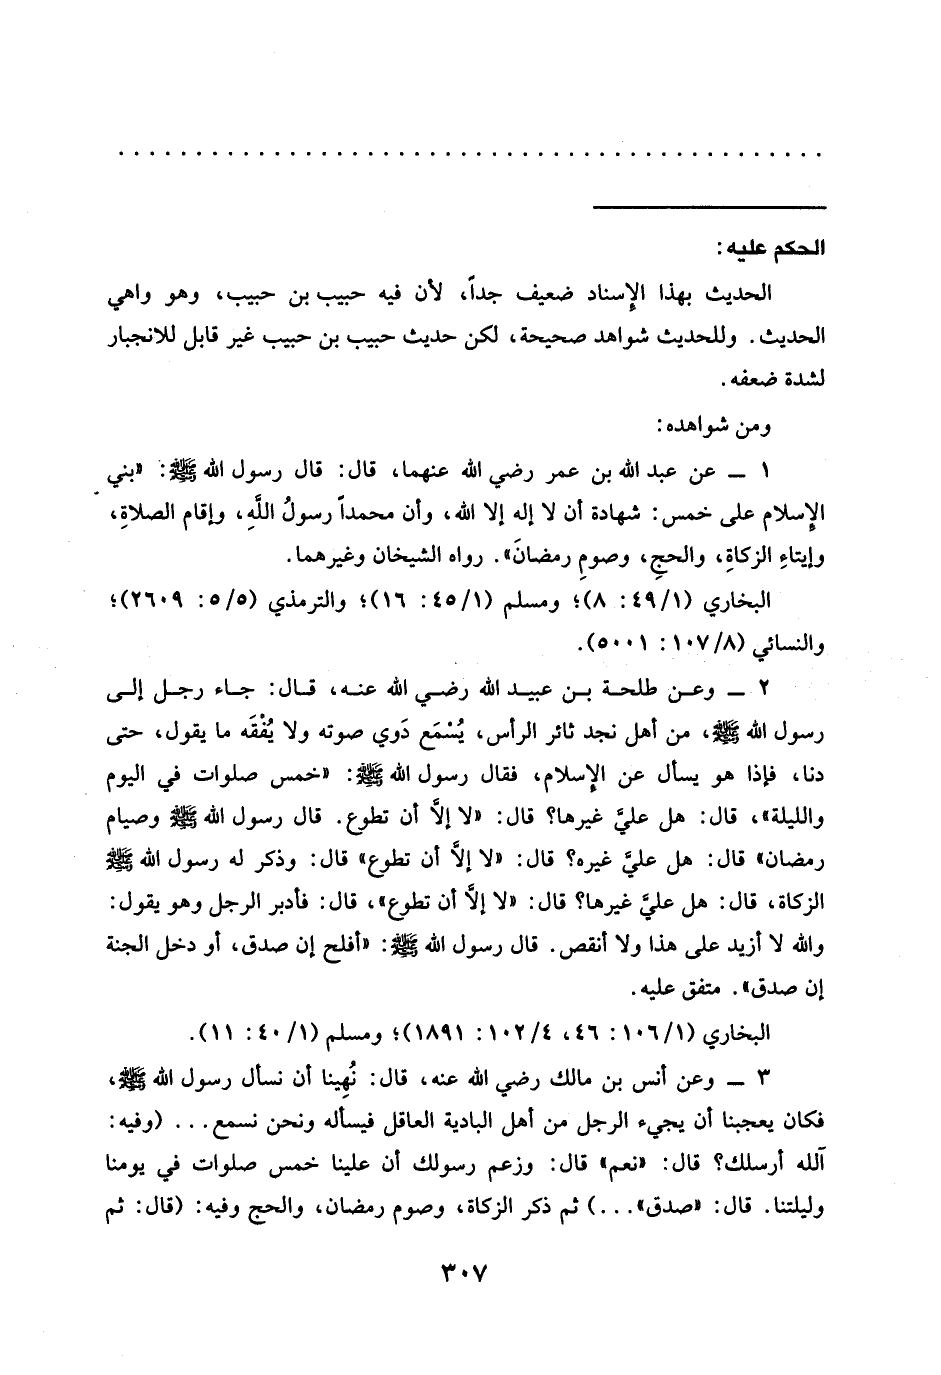 . . . . . . . . . . . . . . . . . . . . . . . . . . . . . . . . . . .
الحكم عليه:
الحديث بهذا الإسناد ضعيف جداً، لأن فيه حبيب بن حبيب، وهو واهي
الحديث. وللحديث شواهد صحيحة، لكن حديث حبيب بن حبيب غير قابل للانجبار
لشدة ضعفه.
ومن شواهده:
١ ــ عن عبد الله بن عمر رضي الله عنهما، قال: قال رسول الله ﷺ: «بني
الإسلام على خمس: شهادة أن لا إله إلا الله، وأن محمداً رسولُ اللَّهِ، وإقام الصلاةِ،
وإيتاءِ الزكاةِ، والحجِ، وصومِ رمضانَ». رواه الشيخان وغيرهما.
البخاري (١/٤٩: ٨)؛ ومسلم (١/٤٥: ١٦)؛ والترمذي (٥/٥: ٢٦٠٩)؛
والنسائي (٨/١٠٧: ٥٠٠١).
٢ ــ وعن طلحة بن عبيد الله رضي الله عنه، قال: جاء رجل إلى
رسول الله ﷺ، من أهل نجد ثائر الرأس، يُسْمَع دَوي صوته ولا يُفْقَه ما يقول، حتى
دنا، فإذا هو يسأل عن الإسلام، فقال رسول الله ﷺ: «خمس صلوات في اليوم
والليلة»، قال: هل عليَّ غيرها؟ قال: «لا إلاَّ أن تطوع. قال رسول الله ﷺ وصيام
رمضان» قال: هل عليَّ غيره؟ قال: «لا إلاَّ أن تطوع» قال: وذكر له رسول الله ﷺ
الزكاة، قال: هل عليَّ غيرها؟ قال: «لا إلاَّ أن تطوع»، قال: فأدبر الرجل وهو يقول:
والله لا أزيد على هذا ولا أنقص. قال رسول الله ﷺ: «أفلح إن صدق، أو دخل الجنة
إن صدق». متفق عليه.
البخاري (١/١٠٦: ٤٦، ٤/١٠٢: ١٨٩١)؛ ومسلم (١/٤٠: ١١).
٣ ــ وعن أنس بن مالك رضي الله عنه، قال: نُهِينا أن نسأل رسول الله ﷺ،
فكان يعجبنا أن يجيء الرجل من أهل البادية العاقل فيسأله ونحن نسمع... (وفيه:
آلله أرسلك؟ قال: «نعم» قال: وزعم رسولك أن علينا خمس صلوات في يومنا
وليلتنا. قال: «صدق»...) ثم ذكر الزكاة، وصوم رمضان، والحج وفيه: (قال: ثم
٣٠٧